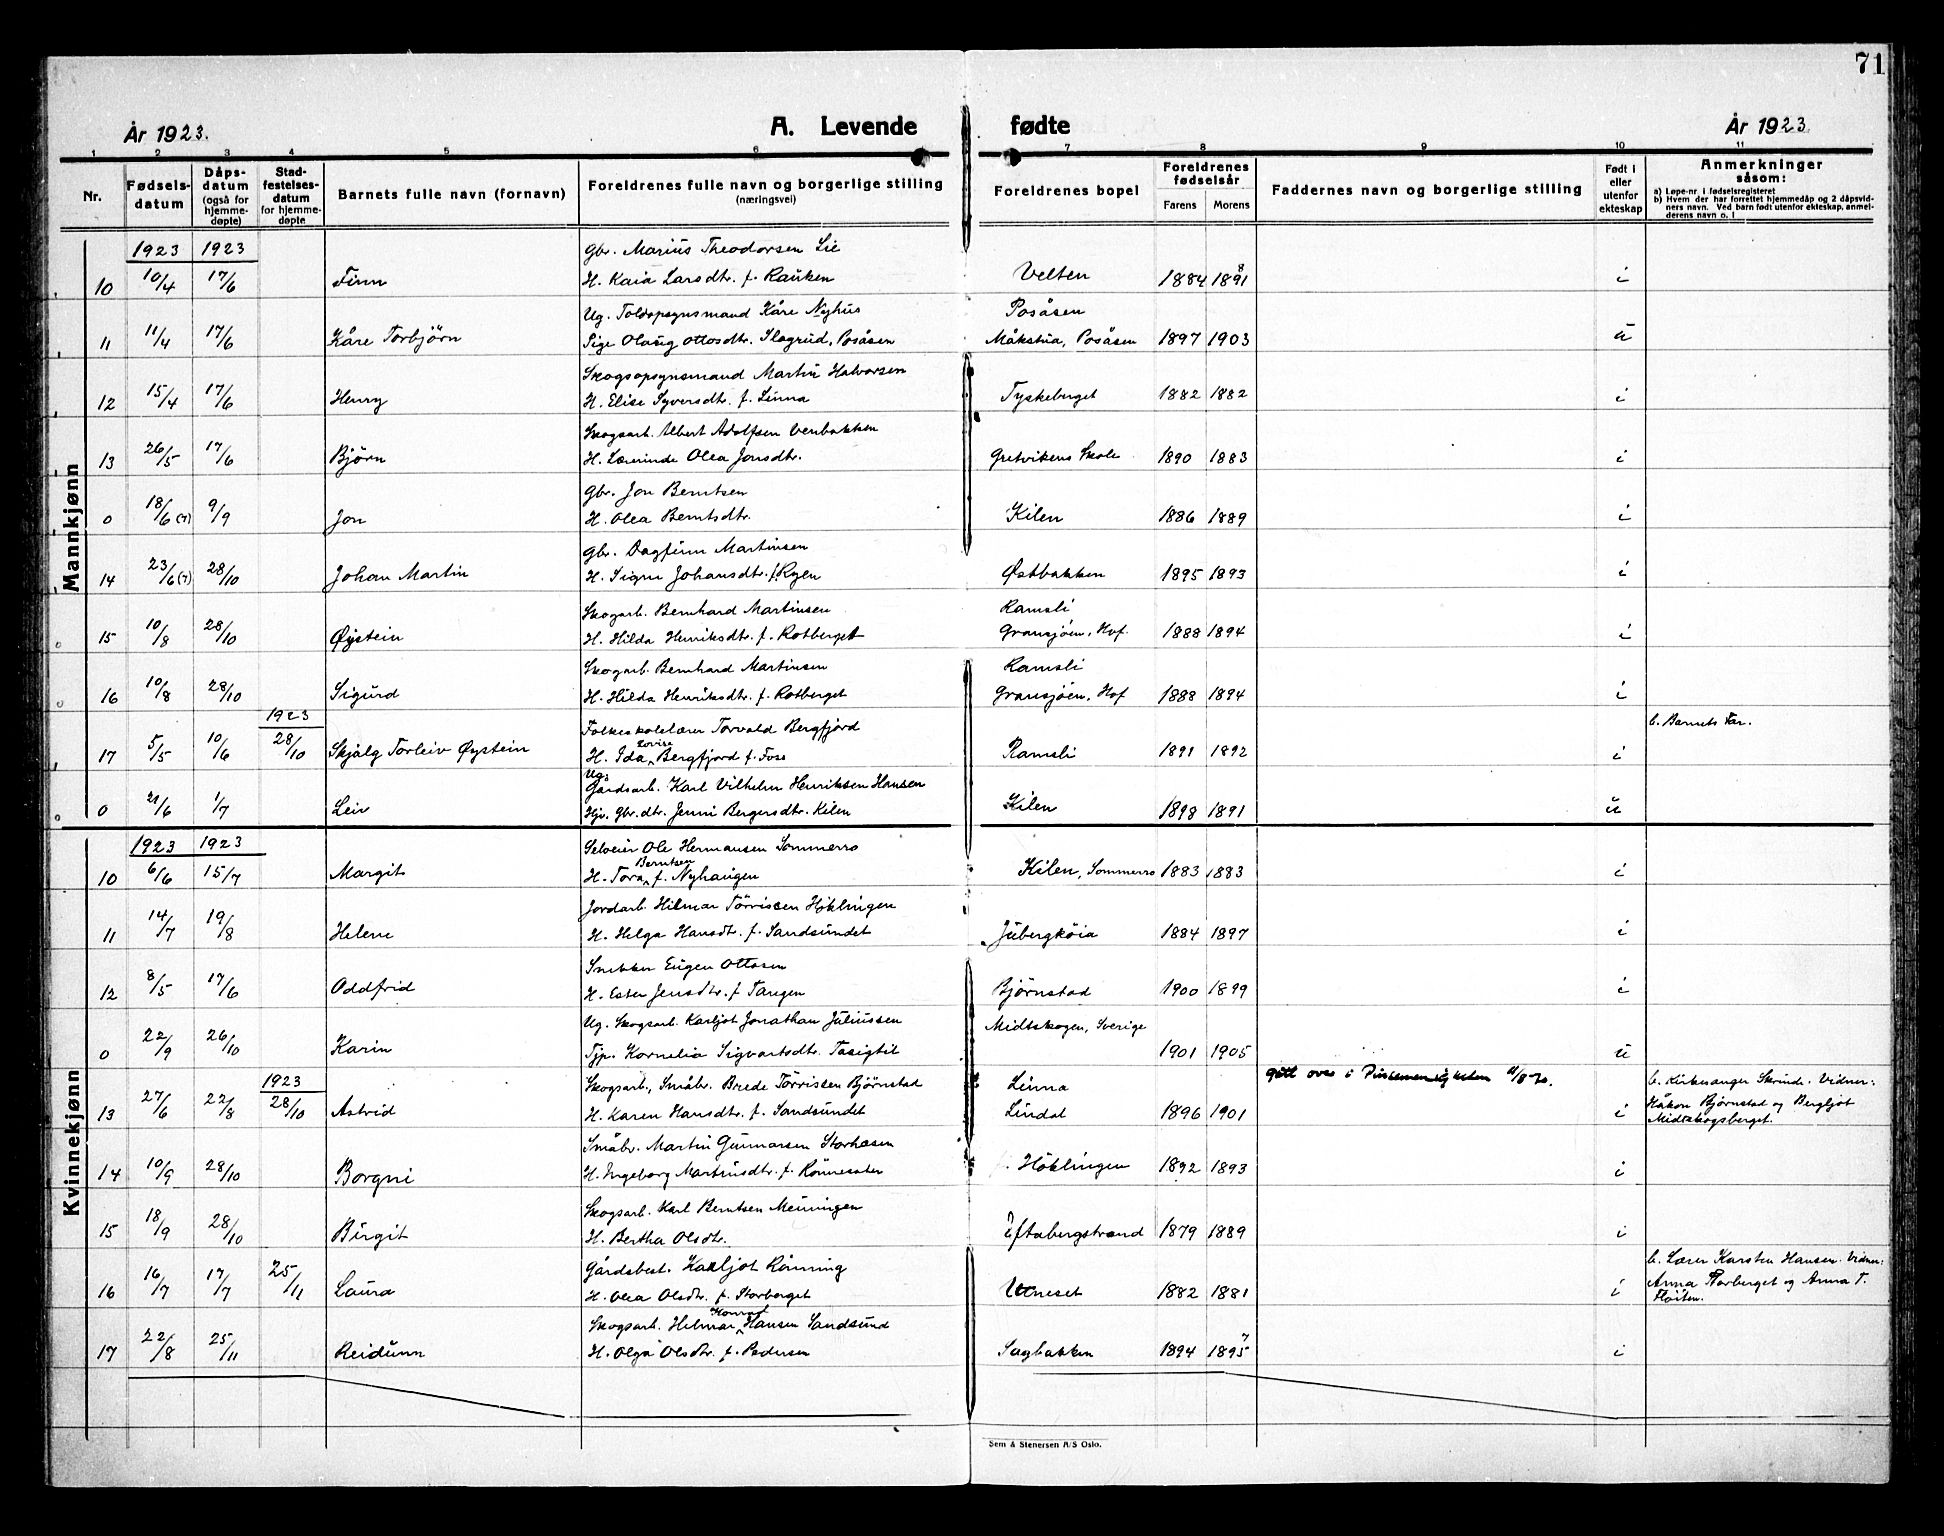 71
År 1923.
A. Levende fødte
År 1923.
1 2 3 4 5 6 7 8 9 10 11
Nr.
Fødsels-
datum
Dåps-
datum
(også for
hjemme-
døpte)
Stad-
festelses-
datum
for hjemme-
døpte
Barnets fulle navn (fornavn)
Foreldrenes fulle navn og borgerlige stilling
(næringsvei)
Foreldrenes bopel
Foreldrenes
fødselsår
Farens Morens
Faddernes navn og borgerlige stilling
Født i
eller
utenfor
ekteskap
Anmerkninger
såsom:
a) Løpe-nr. i fødselsregisteret
b) Hvem der har forrettet hjemmedåp og 2 dåpsvid-
ners navn. Ved barn født utenfor ekteskap, anmel-
derens navn o. l
Mannkjønn
1923 1923
Gbr. Marius Theodorsen Lie
10 10/4 17/6 Finn H. Kaia Larsdtr. f. Rauken Velten 1884 1891 8 i
Ug. Toldopsynsmand Kåre Nyhus Posåsen
11 11/4 17/6 Kåre Torbjörn Pige Olaug Ottosdtr. Slagrud, Posåsen Måkstua, Posåsen 1897 1903 u
Skogsopsynsmand Martin Halvorsen
12 15/4 17/6 Henry H. Elise Syversdtr. f. Linna Tyskeberget 1882 1882 i
Skogsarb. Albert Adolfsen Venbakken
13 26/5 17/6 Björn H. Lærerinde Olea Jonsdtr. Gretvikens Skole 1890 1883 i
Gbr. Jon Berntsen
0 18/6 (?) 9/9 Jon H. Olea Berntsdtr. Kilen 1886 1889 i
Gbr. Dagfinn Martinsen
14 23/6 (?) 28/10 Johan Martin H. Signe Johansdtr. f. Ryen Østbakken 1895 1893 i
Skogarb. Bernhard Martinsen Ramsli
15 10/8 28/10 Øystein H. Hilda Henriksdtr. f. Rotberget Gransjøen, Hof. 1888 1894 i
Skogarb. Bernhard Martinsen Ramsli
16 10/8 28/10 Sigurd H. Hilda Henriksdtr. f. Rotberget Gransjøen, Hof 1888 1894 i
1923 Folkeskolelærer Torvald Bergfjord b. Barnets Far.
17 5/5 10/6 28/10 Skjalg Torleiv Øystein H. Ida Lovise Bergfjord f. Foss Ramsli 1891 1892 i
Ug. Gårdsarb. Karl Vilhelm Henriksen Hansen
0 21/6 1/7 Leiv Hjv. Gbr.dtr. Jenni Bergersdtr. Kilen Kilen 1898 1891 u
Kvinnekjønn
1923 1923
Selveier Ole Hermansen Sommerro
10 6/6 15/7 Margit H. Tora Berntsen f. Nyhaugen Kilen, Sommerro 1883 1883 i
Jordarb. Hilmar Törrissen Höklingen
11 14/7 19/8 Helene H. Helga Hansdtr. f. Sandsundet Jubergkøia 1884 1897 i
Snekker Eugen Ottosen
12 8/5 17/6 Oddfrid H. Ester Jensdtr. f. Tangen Björnstad 1900 1899 i
Ug. Skogsarb. Karljot Jonathan Juliussen Midtskogen, Sverige
0 22/9 26/10 Karin Tjp. Kornelia Sigvartsdtr. Tasigtil 1901 1905 u
1923 Skogsarb., Småbr. Brede Törrissen Björnstad Linna gått over i Pinsemenigheten b. Kirkesanger Skrinde. Vidner:
13 27/6 22/8 28/10 Astrid H. Karen Hansdtr. f. Sandsundet Lindal 1896 1901 i Håkon Björnstad og Bergljot
Midtskogsberget.
Småbr. Martin Gunnarsen Storhasen
14 10/9 28/10 Borgni H. Ingeborg Martinsdtr. f. Rönnesater Höklingen 1892 1893 i
Skogsarb. Karl Berntsen Menningen
15 18/9 28/10 Birgit H. Bertha Olsdtr. Eftabergstrand 1879 1889 i
Gårdsbest. Karljot Rönning b. Lærer Karsten Hansen. Vidner:
16 16/7 17/7 25/11 Laura H. Olea Olsdtr. f. Storberget Utneset 1882 1881 i Anna Storberget og Anna T.
Fløiten.
Skogsarb. Helmar Konrad Hansen Sandsund
17 22/8 25/11 Reidunn H. Olga Olsdtr. f. Pedersen Sagbakken 1894 1895 7 i
Sem & Stenersen A/S Oslo.